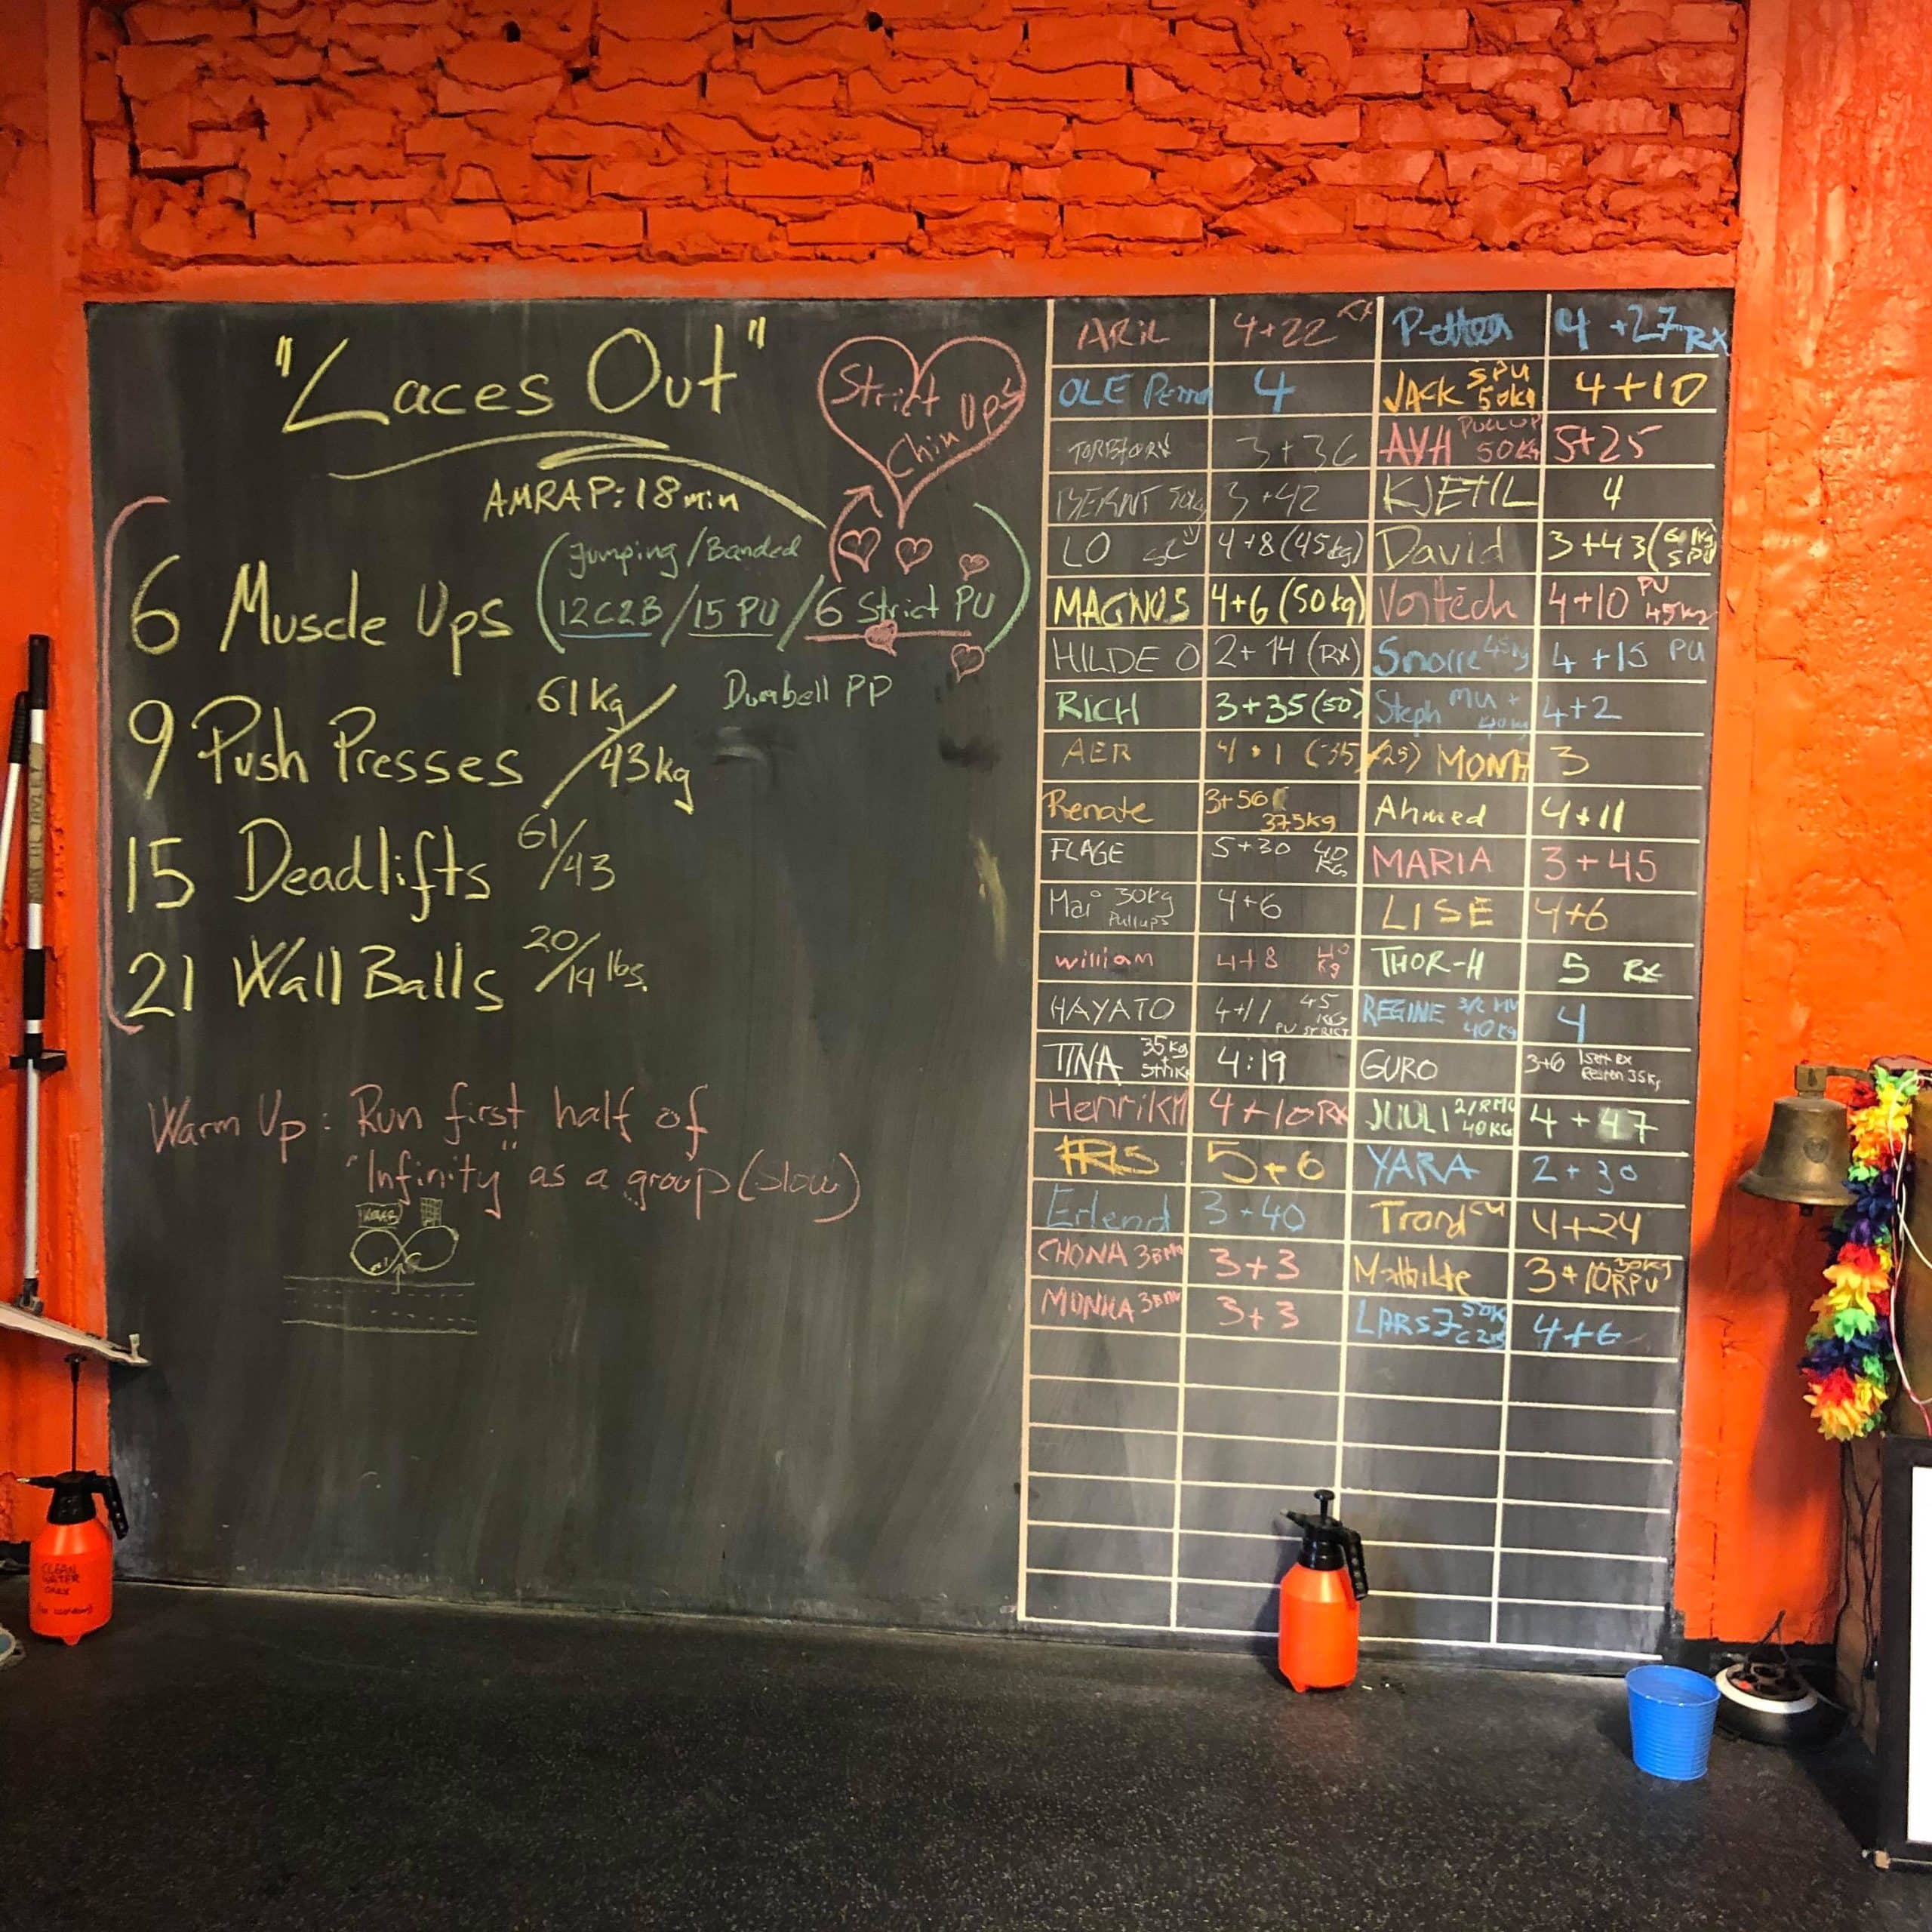 "Laces Out"
Strict
Chin Ups
AMRAP: 18 min
6 Muscle Ups (Jumping/Banded
12 C2B/15 PU/6 Strict PU)
9 Push Presses 61kg/43kg
Dumbell PP
15 Deadlifts 61/43
21 Wall Balls 20/14 lbs.
Warm Up: Run first half of
"Infinity" as a group (slow)
ARIL 4+22 RX Petter 4+27 RX
OLE 4 JACK SPU 50kg 4+10
3+36 AVH PULLUP 50kg 5+25
BERNT 50kg 3+42 KJETIL 4
LO 4+8 (45kg) David 3+43
MAGNUS 4+6 (50kg) 4+10 PU 45kg
HILDE O 2+14 (RX) Snorre 45kg 4+15 PU
RICH 3+35 (50) Steph MU + 40kg 4+2
AER MONA 3
Renate 3+50 37.5kg Ahmed 4+11
FLAGE 5+30 40 KG MARIA 3+45
Mai 30kg Pullups 4+6 LISE 4+6
william 4+8 40 kg THOR-H 5 RX
HAYATO 4+11 45 KG PU STRICT REGINE 40kg 4
TINA 35kg + 4:19 GURO 3+6
Henrik M 4+10 RX JUULI 40KG 4+47
IRIS 5+6 YARA 2+30
Erlend 3+40 Trond CU 4+24
CHONA 3+3 Mathilde 3+10 30kg RPU
3+3 LARS 50K 4+6
CLEAN
WATER
ONLY